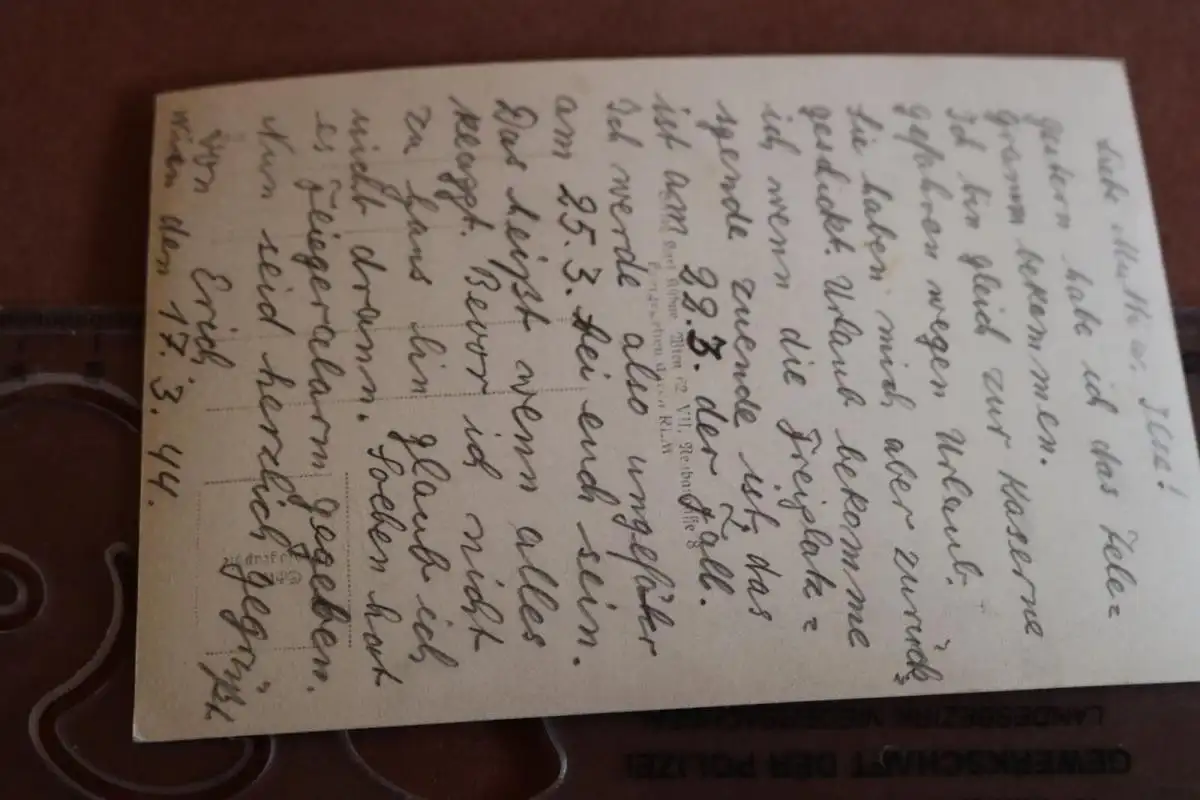 Liebe Mutti u. Ilse!
gestern habe ich das Tele=
gramm bekommen.
Ich bin gleich zur Kaserne
gefahren wegen Urlaub.
Sie haben mich aber zurück=
geschickt. Urlaub bekomme
ich wenn die Freiplatz=
zuende ist, das
ist am 22.3. der Fall.
Ich werde also ungefähr
am 25.3. bei euch sein.
Das heisst wenn alles
klappt. Bevor ich nicht
zu Haus bin glaub ich
nicht drann. Soeben hat
es Fliegeralarm gegeben.
Nun seid herzlich gegrüßt
von Erich
Wien den 17.3.44.
Wien 62 VII,
GEWERKSCHAFT DER POLIZEI
LANDESBEZIRK NIEDERSACHSEN